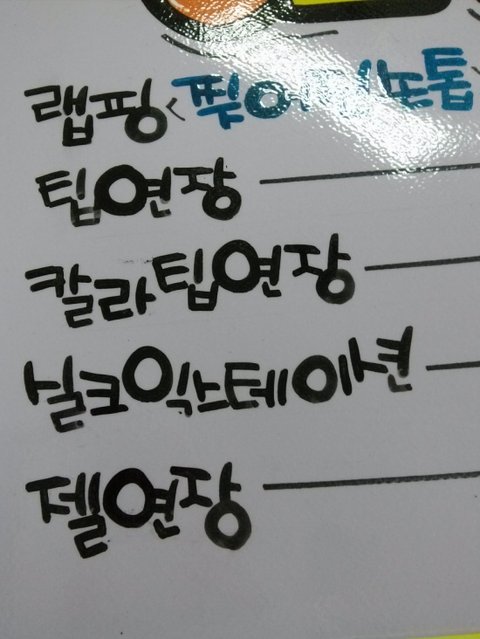 랩핑<찢어진손톱
팁연장
칼라팁연장
실크익스테이션
젤연장